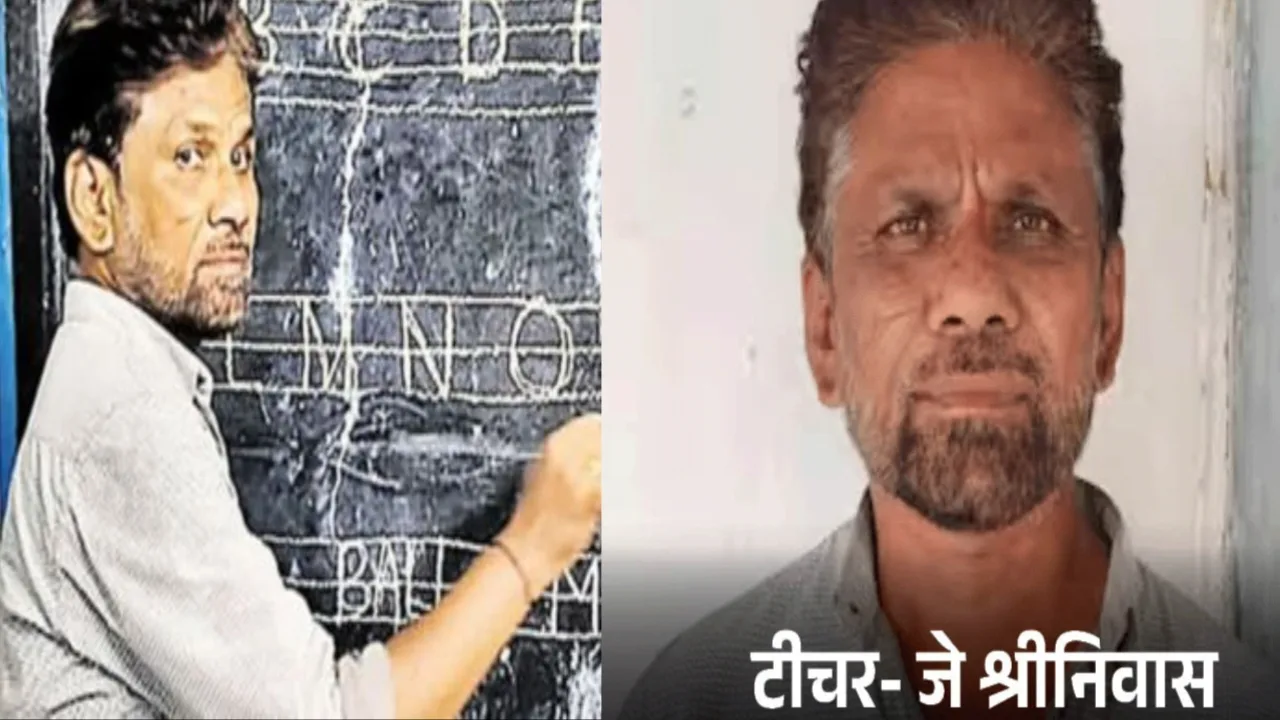 B C D E
L M N O
BALL M
टीचर- जे श्रीनिवास